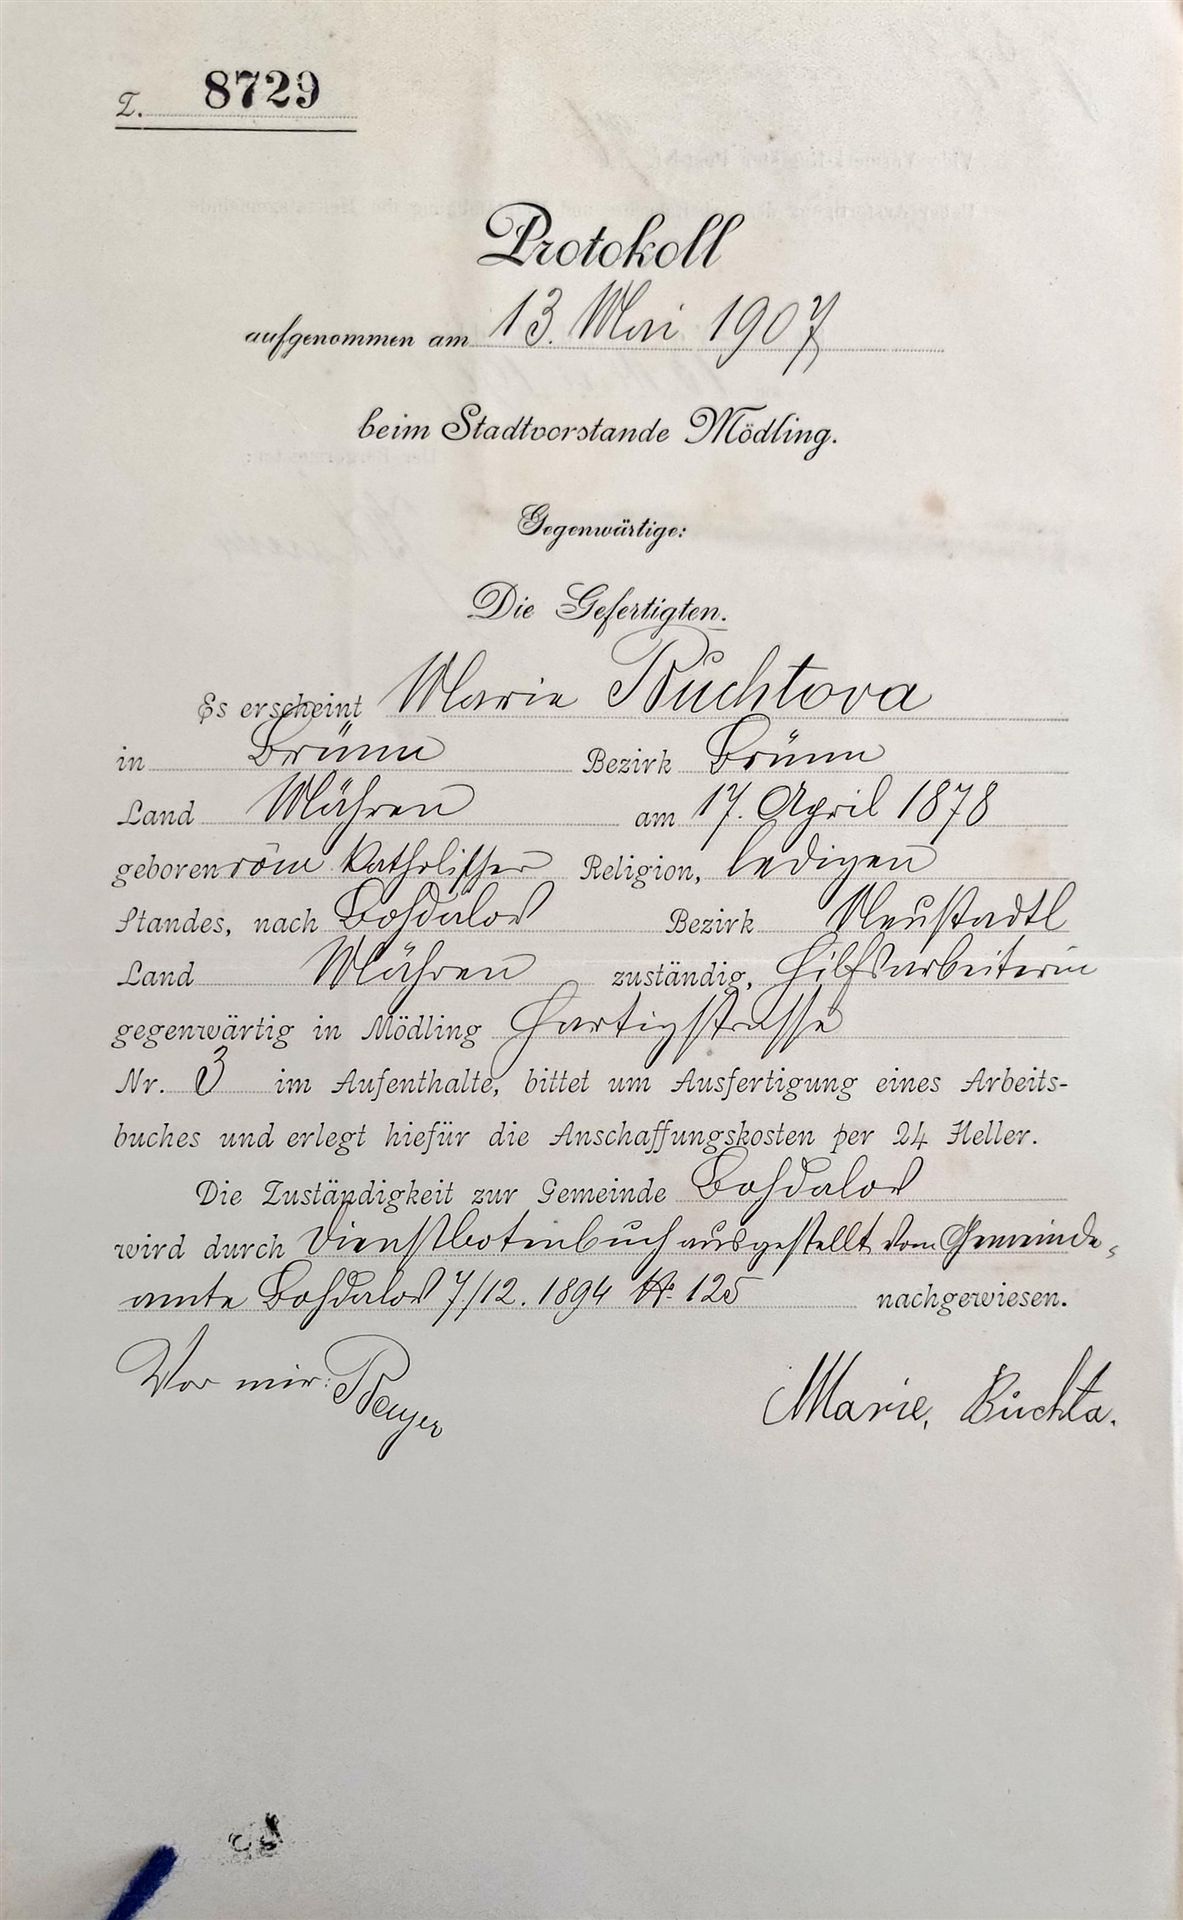 Z. 8729
Protokoll
aufgenommen am 13. Mai 1907
beim Stadtvorstande Mödling.
Gegenwärtige:
Die Gefertigten.
Es erscheint Marie Buchtova
in Brünn Bezirk Brünn
Land Mähren am 17. April 1878
geboren röm katholischer Religion, ledigen
Standes, nach Bohdalov Bezirk Neustadtl
Land Mähren zuständig, Hilfsarbeiterin
gegenwärtig in Mödling Hartigstrasse
Nr. 3 im Aufenthalte, bittet um Ausfertigung eines Arbeits-
buches und erlegt hiefür die Anschaffungskosten per 24 Heller.
Die Zuständigkeit zur Gemeinde Bohdalov
wird durch Dienstbotenbuch ausgestellt vom Gemeinde-
amte Bohdalov 7/12. 1894 No 125 nachgewiesen.
Vor mir:
Marie, Buchta.